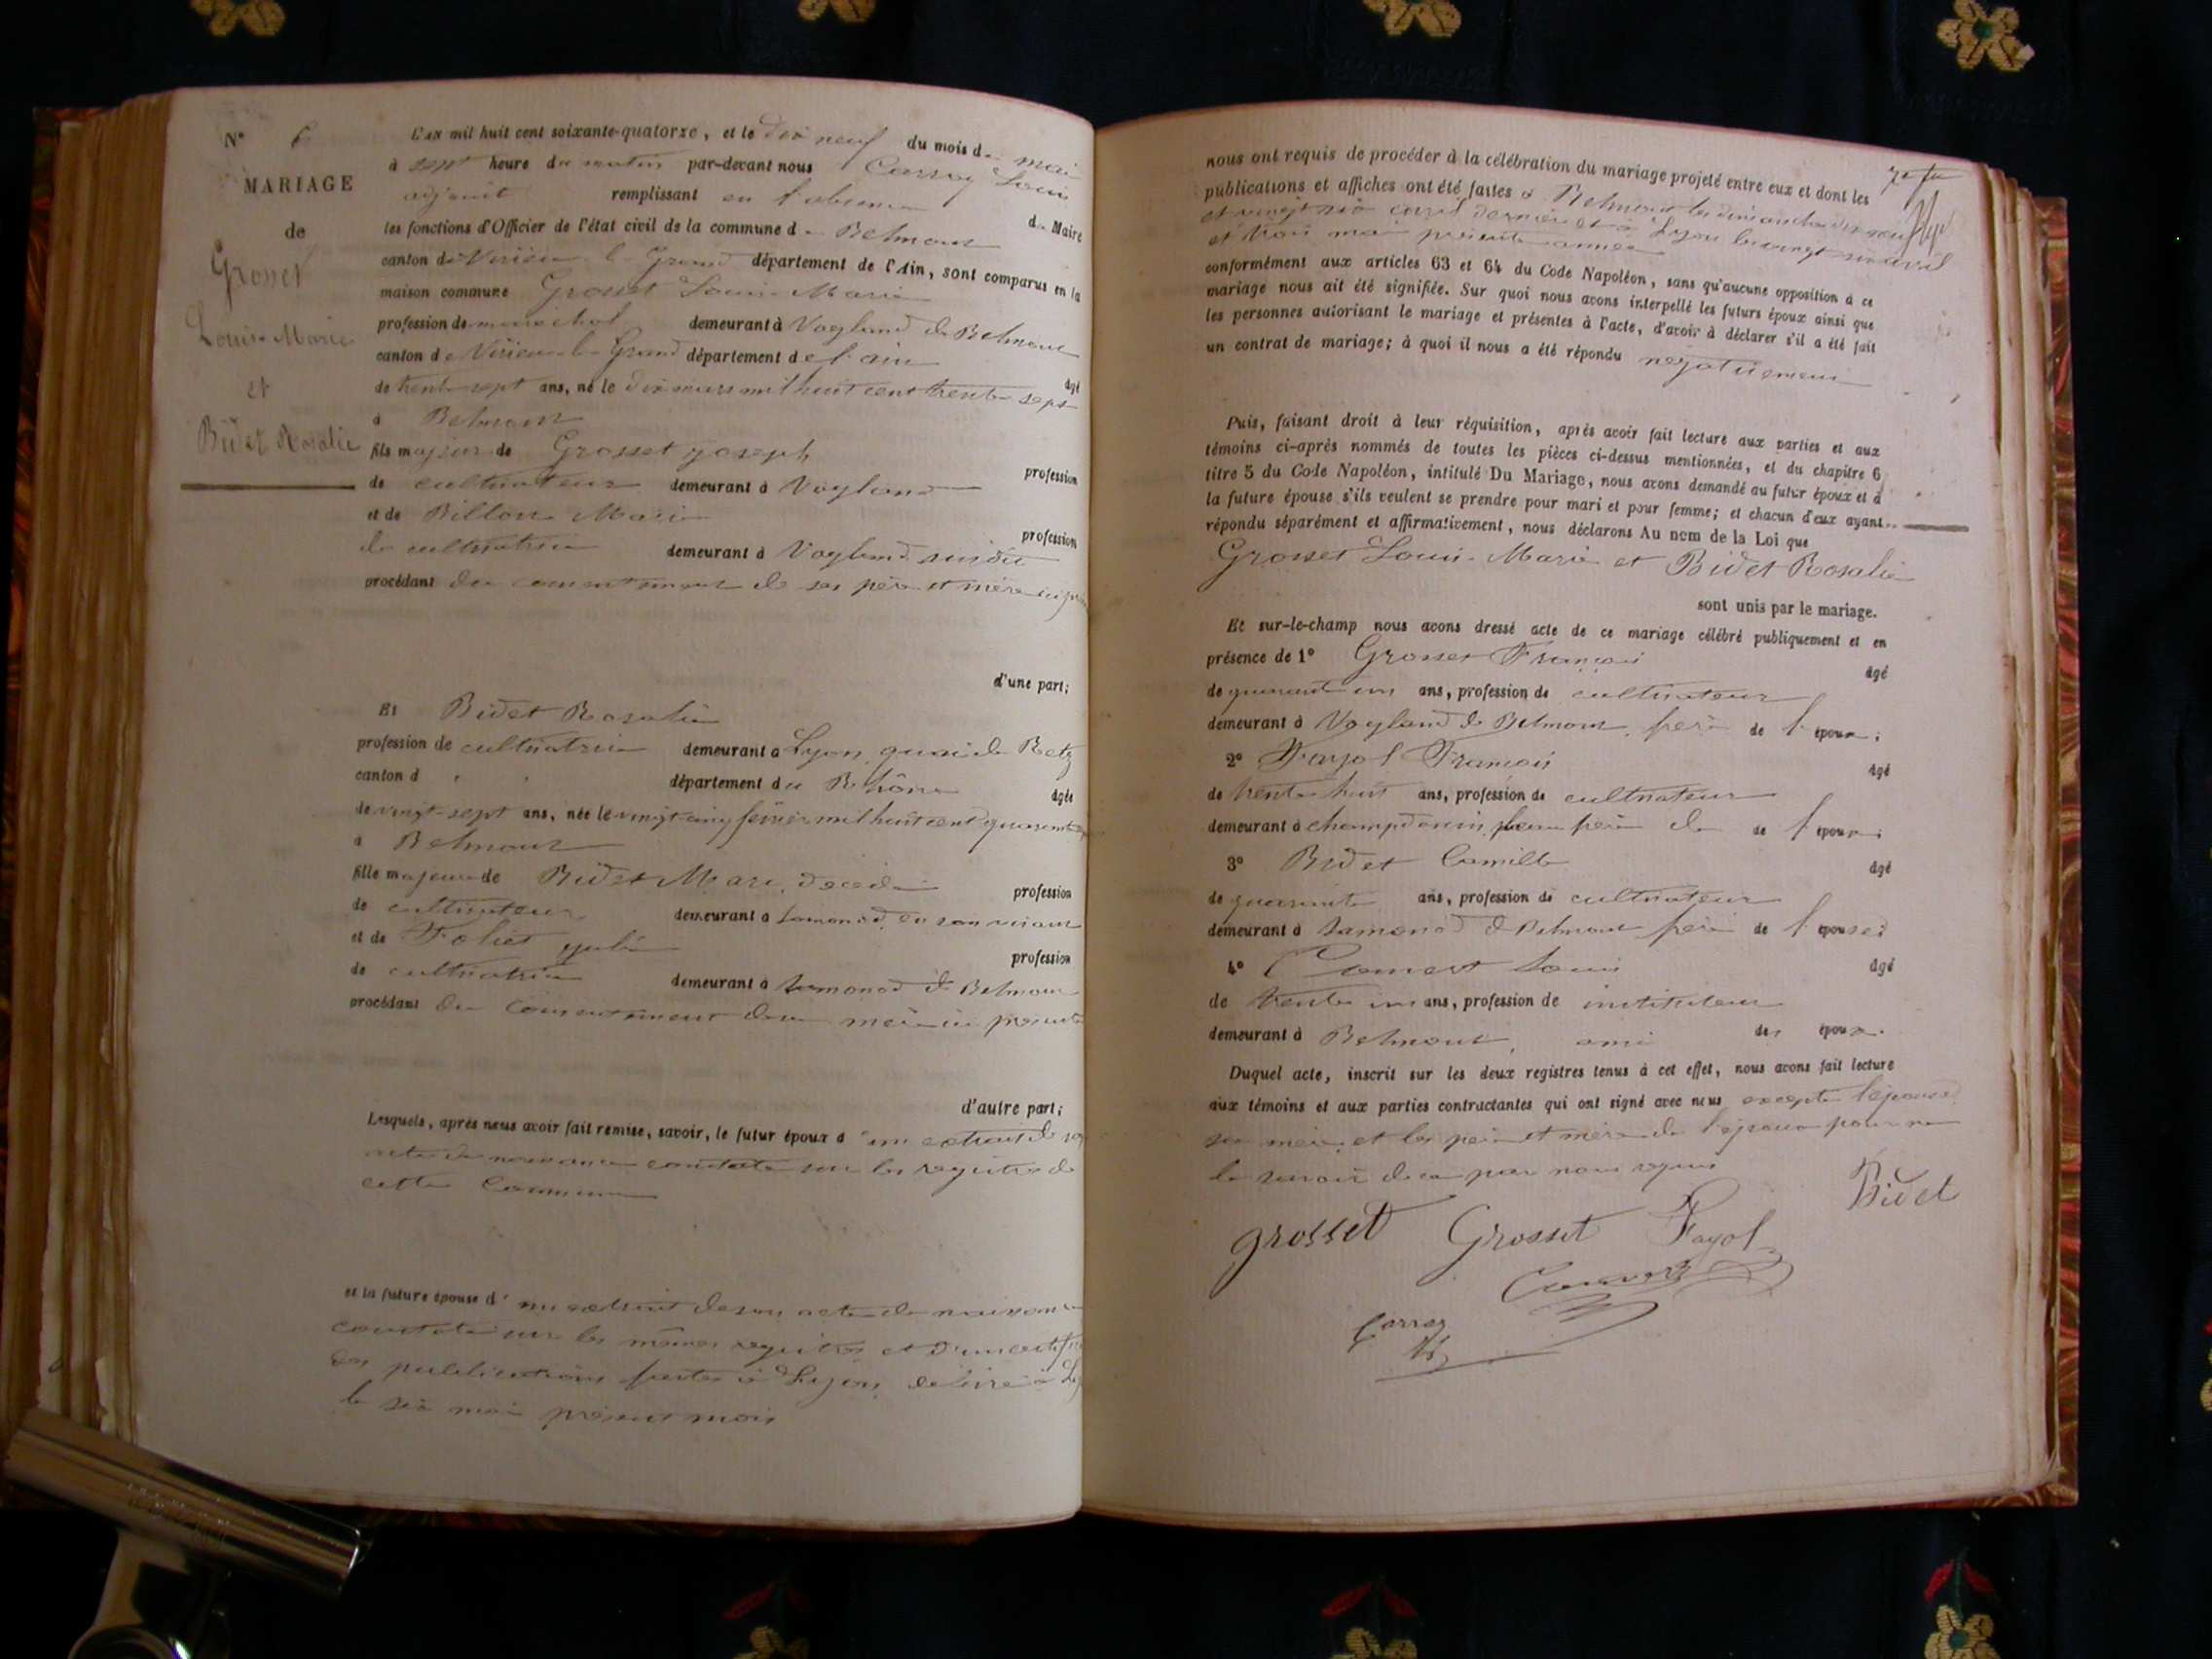 N° 6
MARIAGE
de
Grosset
Louis-Marie
et
Bidet Rosalie
L'AN mil huit cent soixante-quatorze, et le dix neuf du mois de mai
à sept heure du matin par-devant nous Carray Louis
adjoint remplissant en l'absence du Maire
les fonctions d'Officier de l'état civil de la commune de Belmont
canton de Virieu-le-Grand département de l'Ain, sont comparus en la
maison commune Grosset Louis-Marie
profession de maréchal demeurant à Vogland de Belmont
canton de Virieu-le-Grand département de l'ain âgé
de trente sept ans, né le dix mars mil huit cent trente sept
à Belmont
fils majeur de Grosset joseph profession
de cultivateur demeurant à Vogland
et de Billon Marie profession
de cultivatrice demeurant à Vogland susdit
procédant du consentement de ses père et mère ici
d'une part;
Et Bidet Rosalie
profession de cultivatrice demeurant à Lyon, quai de Retz
canton d département du Rhône âgée
de vingt-sept ans, née le vingt cinq février mil huit cent quarante
à Belmont
fille majeure de Bidet Marc, décédé profession
de cultivateur demeurant à Samonod, en son vivant
et de Foliet julie profession
de cultivatrice demeurant à Samonod de Belmont
procédant du consentement de sa mère ici présente
d'autre part;
Lesquels, après nous avoir fait remise, savoir, le futur époux d'un extrait de son
acte de naissance constaté sur les registres de
cette Commune
et la future épouse d'un extrait de son acte de naissance
constaté sur les mêmes registres et d'un certificat
des publications faites à Lyon, délivré à
le six mai présent mois
nous ont requis de procéder à la célébration du mariage projeté entre eux et dont les
publications et affiches ont été faites à Belmont les dimanches dix neuf
et vingt six avril dernier et à Lyon les vingt six avril
et trois mai présente année
conformément aux articles 63 et 64 du Code Napoléon, sans qu'aucune opposition à ce
mariage nous ait été signifiée. Sur quoi nous avons interpellé les futurs époux ainsi que
les personnes autorisant le mariage et présentes à l'acte, d'avoir à déclarer s'il a été fait
un contrat de mariage; à quoi il nous a été répondu négativement
Puis, faisant droit à leur réquisition, après avoir fait lecture aux parties et aux
témoins ci-après nommés de toutes les pièces ci-dessus mentionnées, et du chapitre 6
titre 5 du Code Napoléon, intitulé Du Mariage, nous avons demandé au futur époux et à
la future épouse s'ils veulent se prendre pour mari et pour femme; et chacun d'eux ayant
répondu séparément et affirmativement, nous déclarons Au nom de la Loi que
Grosset Louis-Marie et Bidet Rosalie
sont unis par le mariage.
Et sur-le-champ nous avons dressé acte de ce mariage célébré publiquement et en
présence de 1° Grosset François âgé
de quarante un ans, profession de cultivateur
demeurant à Vogland de Belmont, frère de l'époux;
2° Fayol François âgé
de trente huit ans, profession de cultivateur
demeurant à champdossin, beau frère de de l'époux;
3° Bidet Camille âgé
de quarante ans, profession de cultivateur
demeurant à Samonod de Belmont frère de l'épouse;
4° Louis âgé
de trente un ans, profession de instituteur
demeurant à Belmont, ami des époux.
Duquel acte, inscrit sur les deux registres tenus à cet effet, nous avons fait lecture
aux témoins et aux parties contractantes qui ont signé avec nous excepté l'épouse,
sa mère, et les père et mère de l'époux pour ne
le savoir de ce par nous requis
grosset Grosset Fayol Bidet
Carray